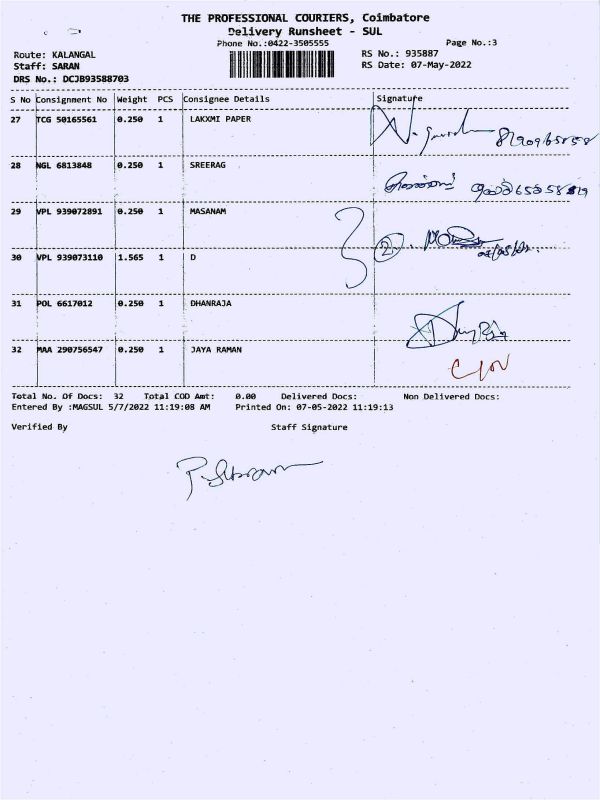 THE PROFESSIONAL COURIERS, Coimbatore
Delivery Runsheet - SUL
Phone No.:0422-3505555
Page No.:3
Route: KALANGAL
RS No.: 935887
Staff: SARAN
RS Date: 07-May-2022
DRS No.: DCJB93588703
S No Consignment No Weight PCS Consignee Details Signature
27 TCG 50165561 0.250 1 LAKXMI PAPER
28 NGL 6813848 0.250 1 SREERAG
29 VPL 939072891 0.250 1 MASANAM
30 VPL 939073110 1.565 1 D
2
31 POL 6617012 0.250 1 DHANRAJA
32 MAA 290756547 0.250 1 JAYA RAMAN
Total No. Of Docs: 32 Total COD Amt: 0.00 Delivered Docs: Non Delivered Docs:
Entered By :MAGSUL 5/7/2022 11:19:08 AM Printed On: 07-05-2022 11:19:13
Verified By Staff Signature